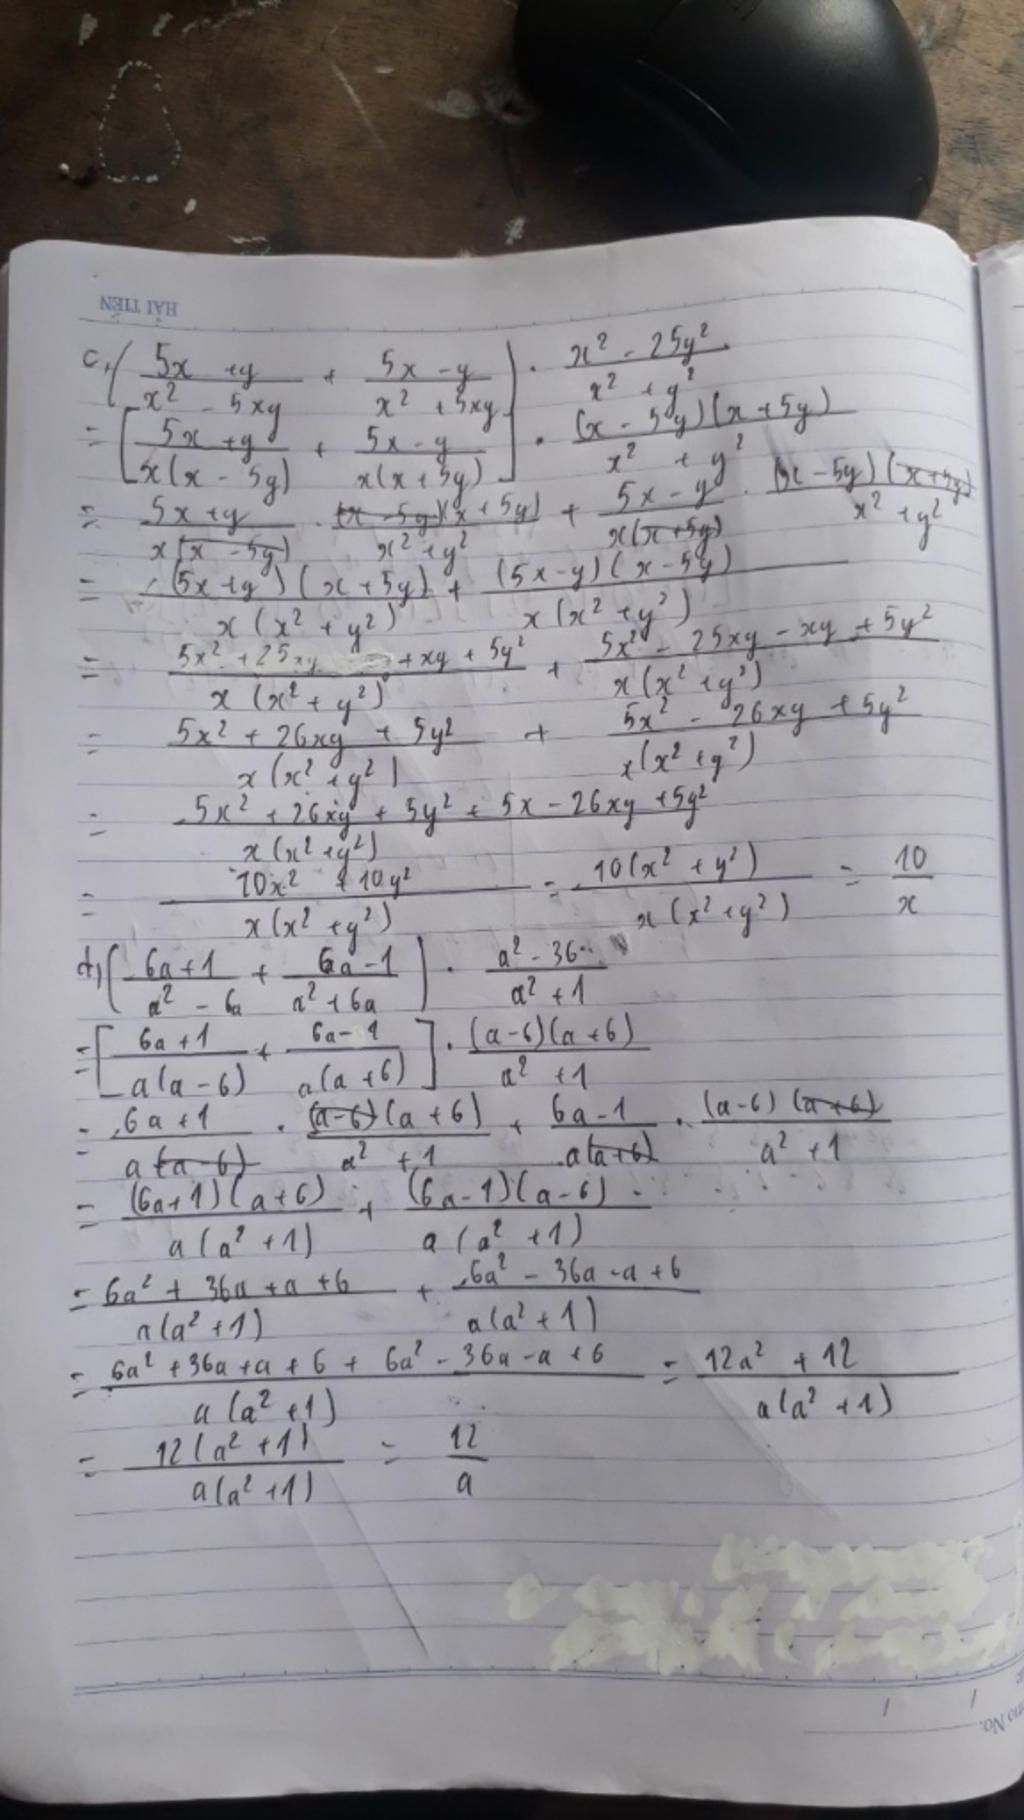 HẢI TIẾN
c, ( (5x + y)/(x² - 5xy) + (5x - y)/(x² + 5xy) ) . (x² - 25y²)/(x² + y²)
= [ (5x + y)/(x(x - 5y)) + (5x - y)/(x(x + 5y)) ] . ((x - 5y)(x + 5y))/(x² + y²)
= (5x + y)/(x(x - 5y)) . ((x - 5y)(x + 5y))/(x² + y²) + (5x - y)/(x(x + 5y)) . ((x - 5y)(x + 5y))/(x² + y²)
= ((5x + y)(x + 5y))/(x(x² + y²)) + ((5x - y)(x - 5y))/(x(x² + y²))
= (5x² + 25xy + xy + 5y²)/(x(x² + y²)) + (5x² - 25xy - xy + 5y²)/(x(x² + y²))
= (5x² + 26xy + 5y²)/(x(x² + y²)) + (5x² - 26xy + 5y²)/(x(x² + y²))
= (5x² + 26xy + 5y² + 5x - 26xy + 5y²)/(x(x² + y²))
= (10x² + 10y²)/(x(x² + y²)) = (10(x² + y²))/(x(x² + y²)) = 10/x
d, [ (6a + 1)/(a² - 6a) + (6a - 1)/(a² + 6a) ] . (a² - 36)/(a² + 1)
= [ (6a + 1)/(a(a - 6)) + (6a - 1)/(a(a + 6)) ] . ((a - 6)(a + 6))/(a² + 1)
= (6a + 1)/(a(a - 6)) . ((a - 6)(a + 6))/(a² + 1) + (6a - 1)/(a(a + 6)) . ((a - 6)(a + 6))/(a² + 1)
= ((6a + 1)(a + 6))/(a(a² + 1)) + ((6a - 1)(a - 6))/(a(a² + 1))
= (6a² + 36a + a + 6)/(a(a² + 1)) + (6a² - 36a - a + 6)/(a(a² + 1))
= (6a² + 36a + a + 6 + 6a² - 36a - a + 6)/(a(a² + 1)) = (12a² + 12)/(a(a² + 1))
= (12(a² + 1))/(a(a² + 1)) = 12/a
No.